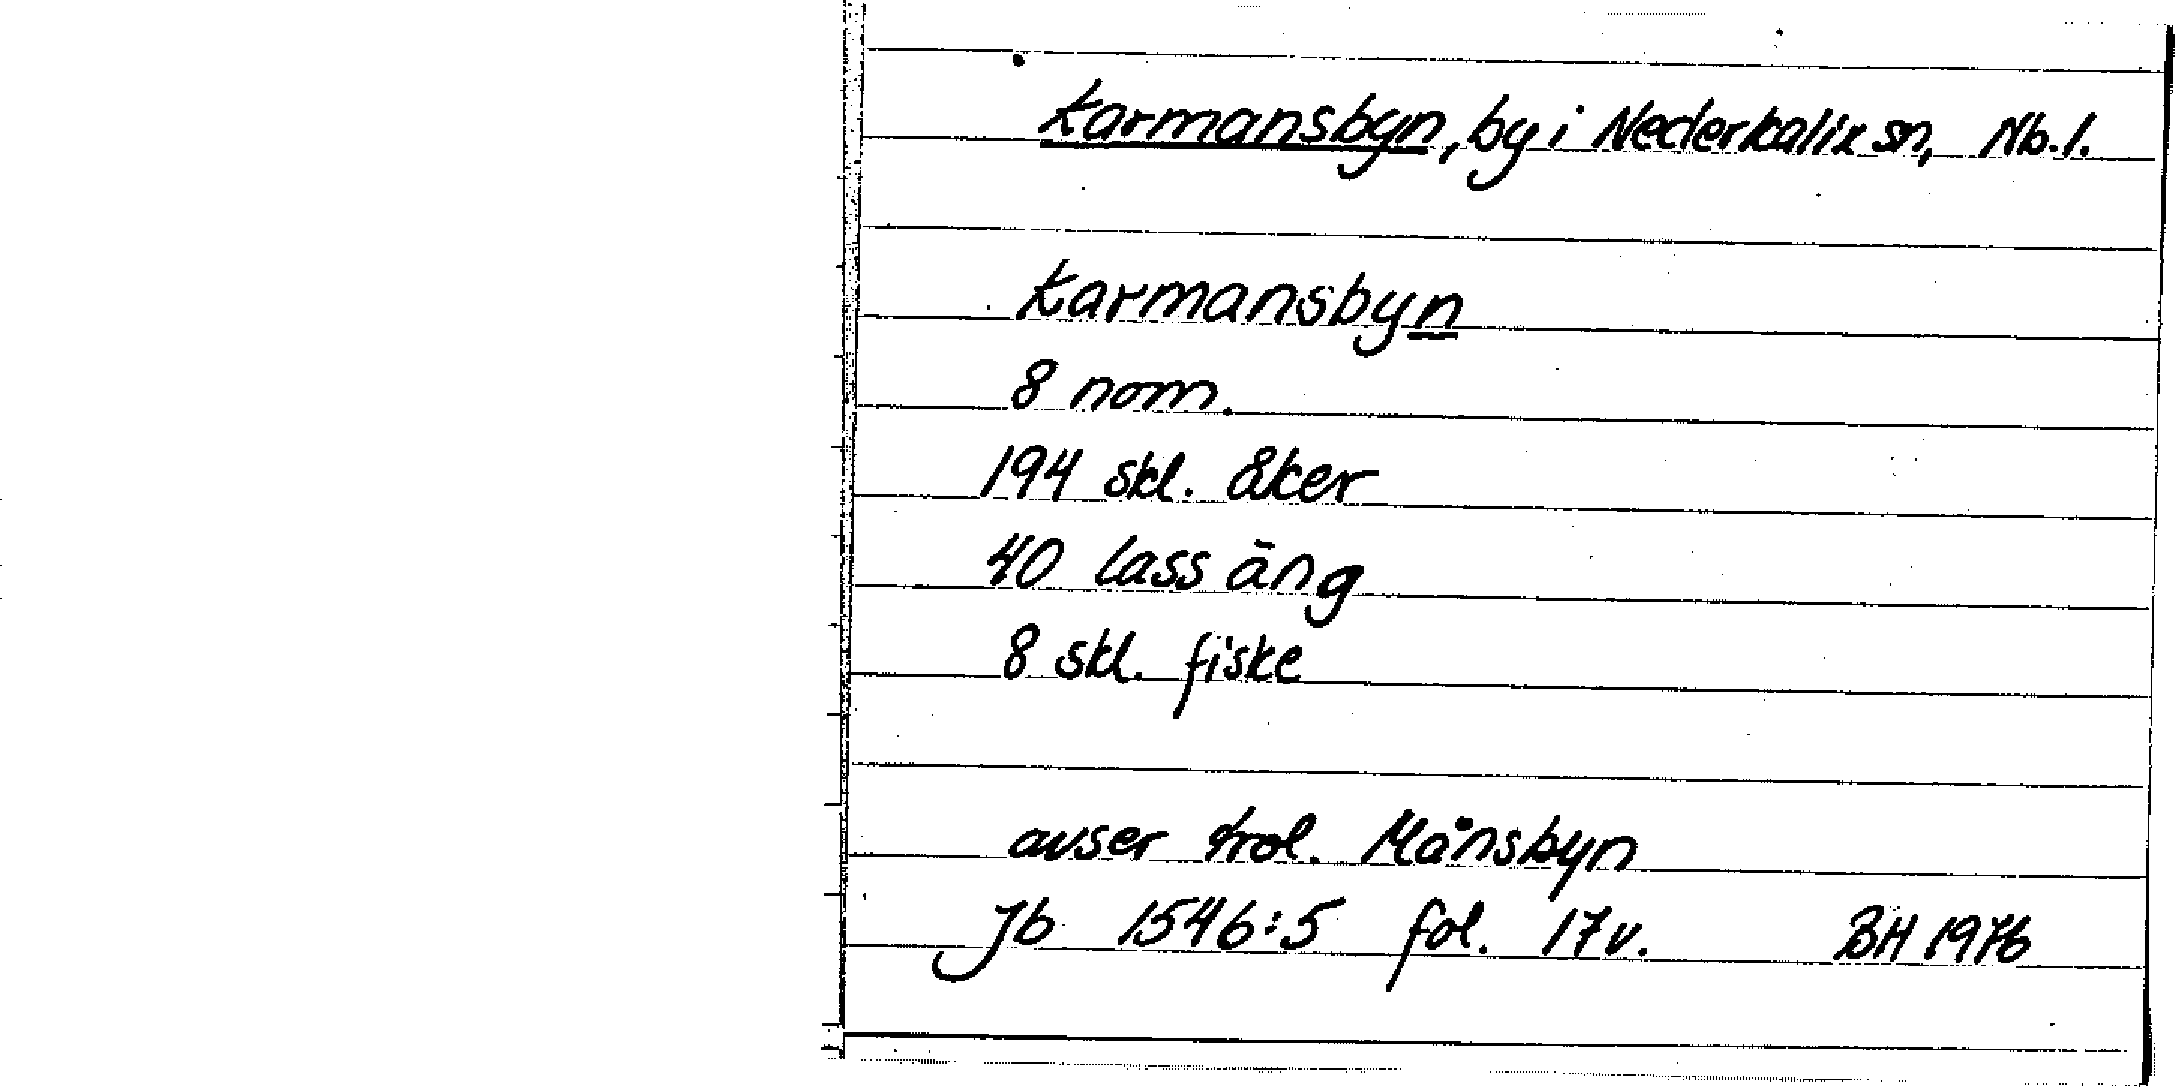 Karmansbyn, by i Nederkalix sn, Nb.l.
Karmansbyn
8 nom.
194 skl. åker
40 lass äng
8 skl. fiske
avser trol. Månsbyn
Jb 1546:5 fol. 17v. BH 1976